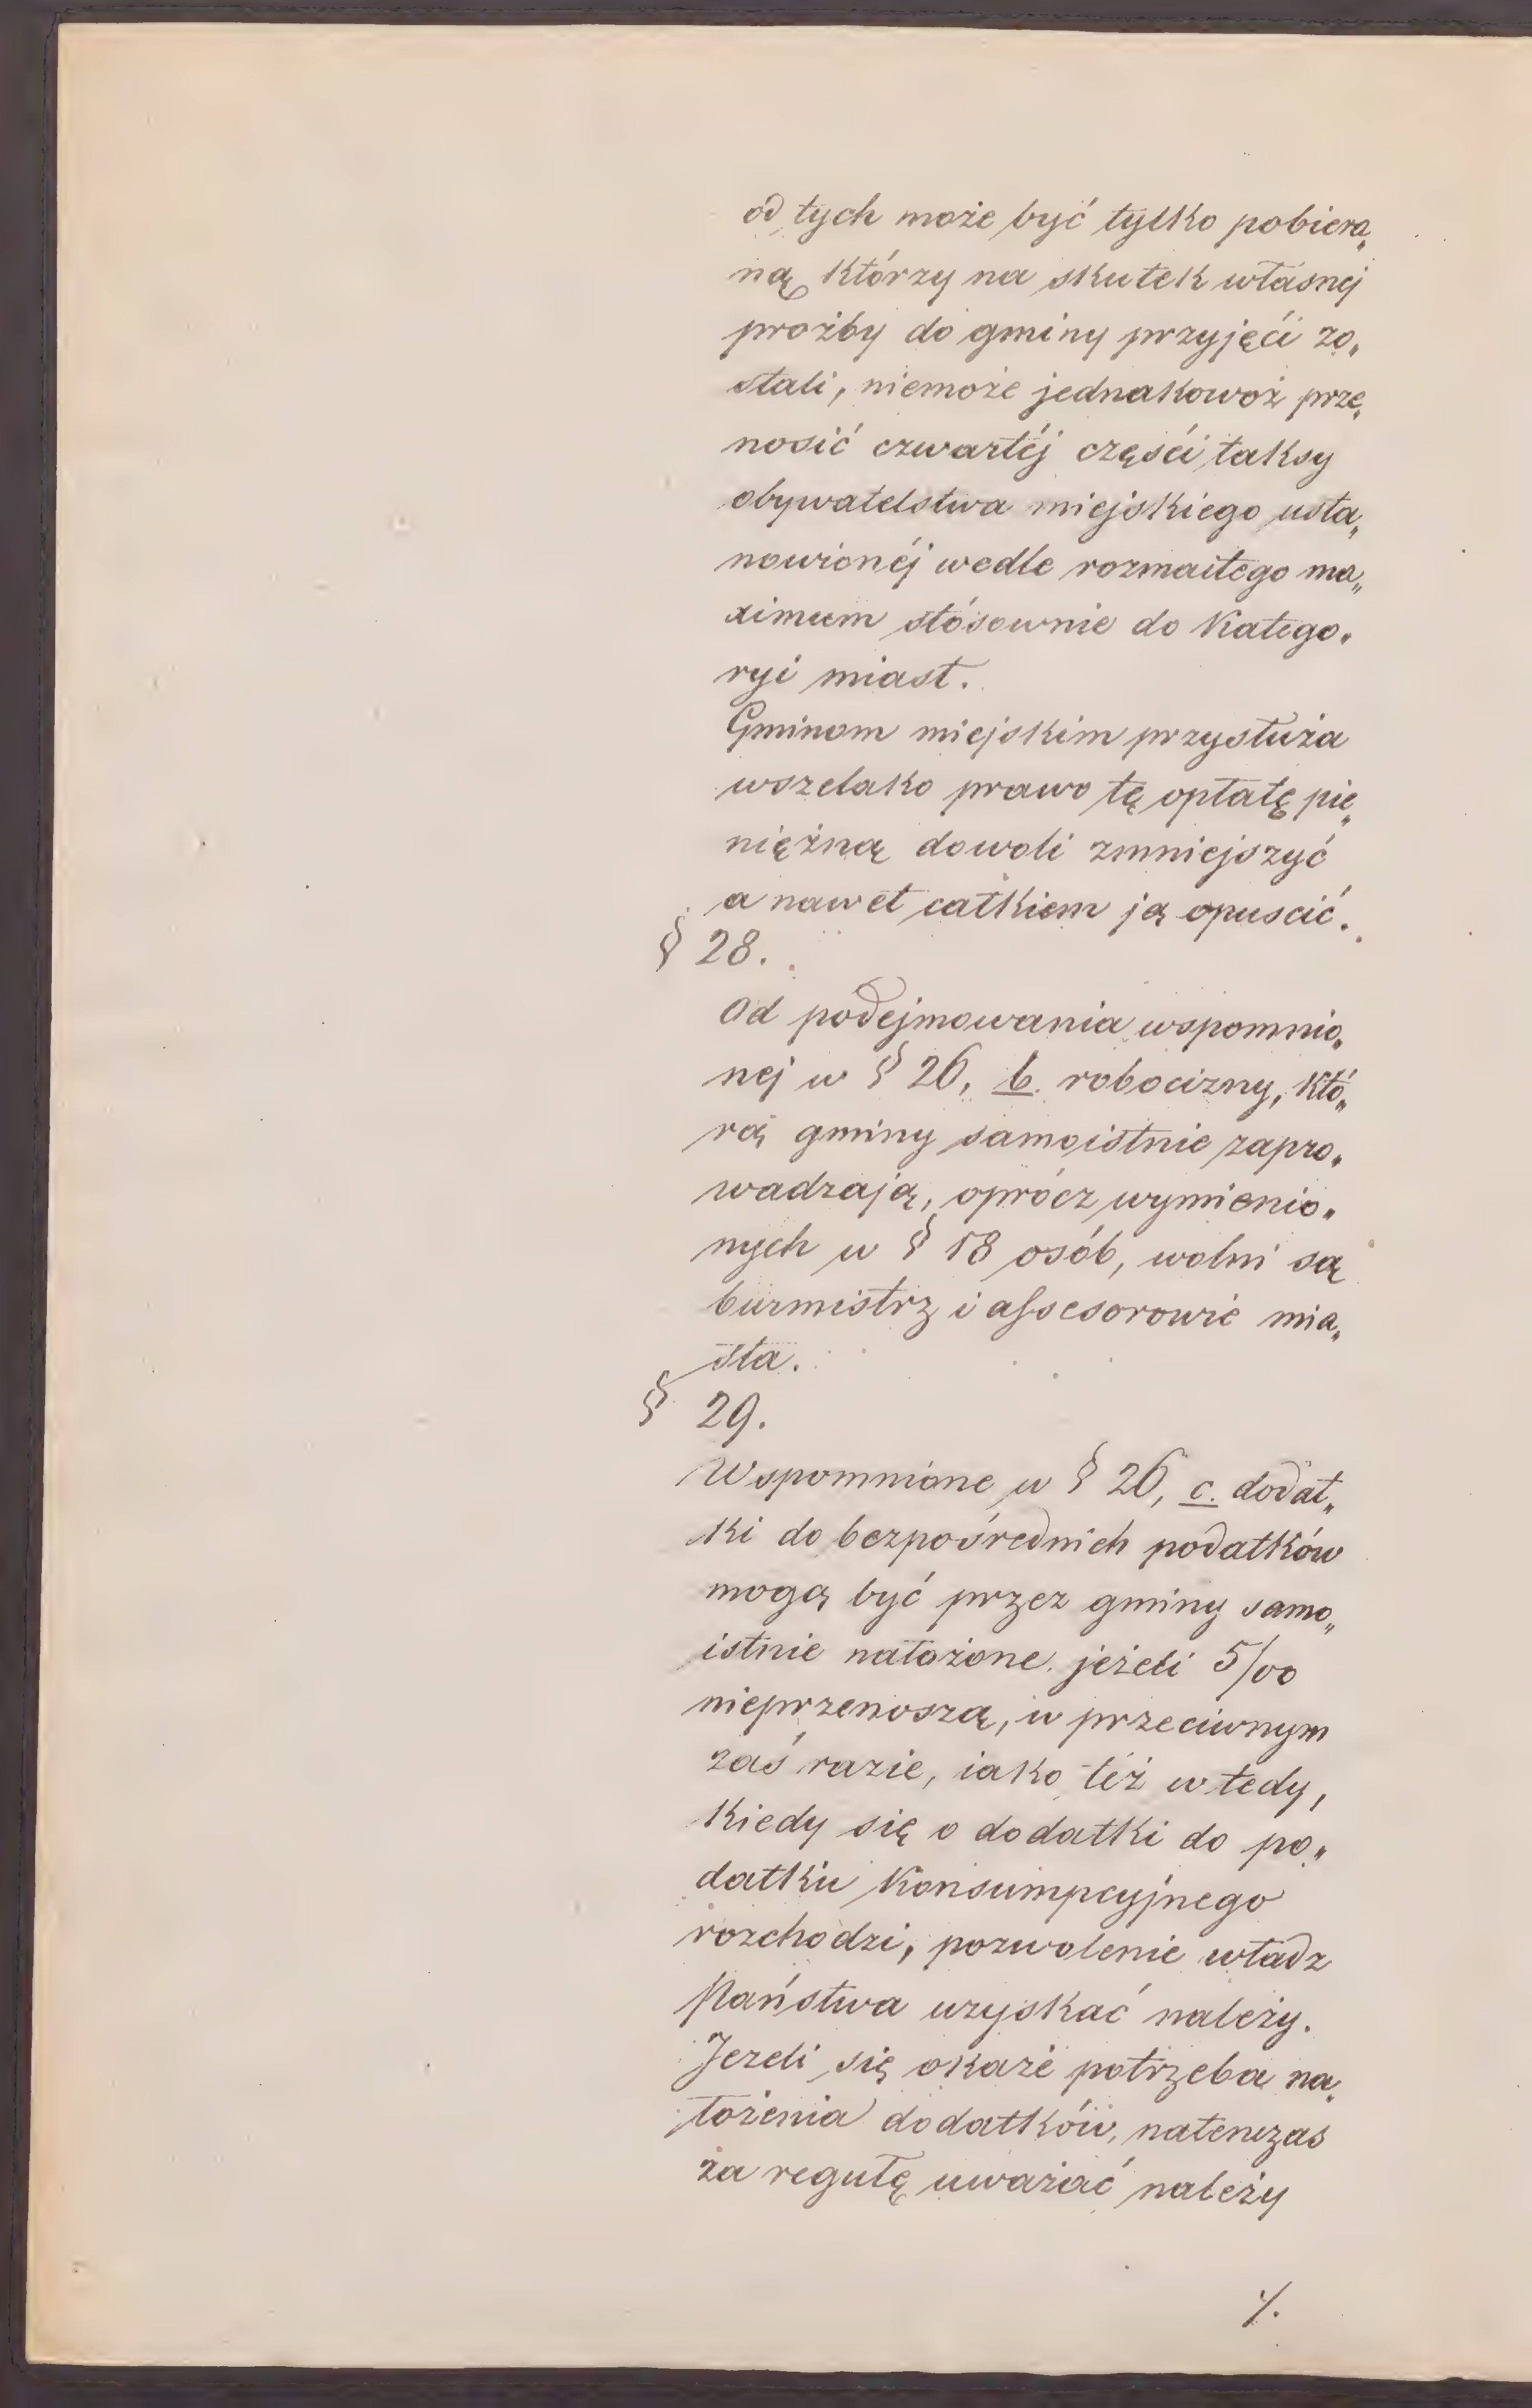 od tych może być tylko pobiera„
ną, którzy na skutek własnej
proźby do gminy przyjęci zo„
stali, niemoże jednakowoż prze„
nosić czwartéj części taksy
obywatelstwa miejskiego usta„
nowionéj wedle rozmaitego ma„
ximum stósownie do katego„
ryi miast.
Gminom miejskim przysłuża
wszelako prawo tę opłatę pie„
niężną dowoli zmniejszyć
a nawet całkiem ją opuscić.
§ 28.
Od podejmowania wspomnio„
nej w § 26, b. robocizny, któ„
rą gminy samoistnie zapro„
wadzają, oprócz wymienio„
nych w § 18 osób, wolni są
burmistrz i assesorowie mia„
sta.
§ 29.
Wspomnione w § 26, c. dodat„
ki do bezpośrednich podatków
mogą być przez gminy samo„
istnie nałożone jeżeli 5/00
nieprzenoszą, w przeciwnym
zaś razie, iako też wtedy,
kiedy się o dodatki do po„
datku konsumpcyjnego
rozchodzi, pozwolenie władz
państwa uzyskać należy.
Jezeli się okaże potrzeba na„
łożenia dodatków, natenczas
za regułę uważać należy
·/.